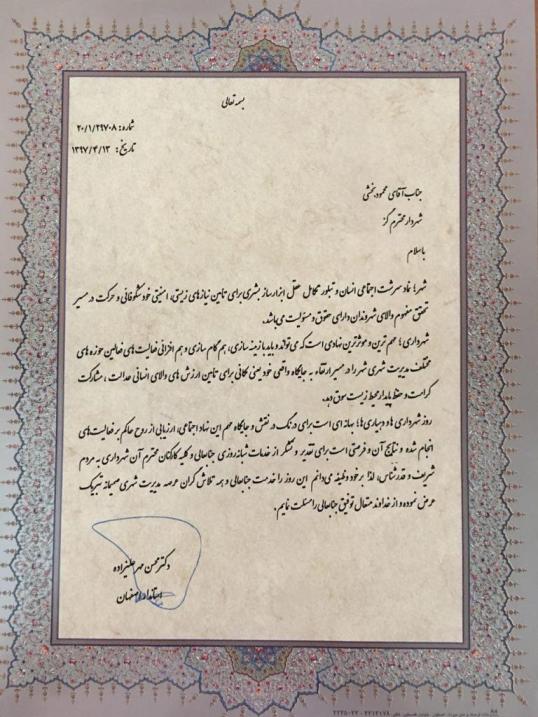 بسمه تعالی
شماره: ۲۰/۱/۲۹۷۰۸
تاریخ: ۱۳۹۷/۴/۱۳
جناب آقای محمود بخشی
شهردار محترم گز
باسلام
شهر؛ نماد سرشت اجتماعی انسان و تبلور تکامل عقل ابزارساز بشری برای تامین نیازهای زیستی، امنیتی خودشکوفائی و حرکت در مسیر
تحقق مفهوم والای شهروندان دارای حقوق و مسئولیت می‌باشد.
شهرداری؛ مهم ترین و موثرترین نهادی است که می‌تواند و باید با زمینه سازی، هم گام سازی و هم افزائی فعالیت های فعالین حوزه های
مختلف مدیریت شهری شهر را در مسیر ارتقاء به جایگاه واقعی خود یعنی مکانی برای تامین ارزش های والای انسانی عدالت، مشارکت
کرامت و حفظ پایدار محیط زیست سوق دهد.
روز شهرداری ها و دهیاری ها؛ بهانه ای است برای درنگ در نقش و جایگاه مهم این نهاد اجتماعی، ارزیابی از روح حاکم بر فعالیت های
انجام شده و نتایج آن و فرصتی است برای تقدیر و تشکر از خدمات شبانه روزی جنابعالی و کلیه کارکنان محترم آن شهرداری به مردم
شریف و قدرشناس، لذا بر خود وظیفه می‌دانم این روز را خدمت جنابعالی و همه تلاش گران عرصه مدیریت شهری صمیمانه تبریک
عرض نموده و از خداوند متعال توفیق جنابعالی را مسئلت نمایم.
دکتر محسن مهرعلیزاده
استاندار اصفهان